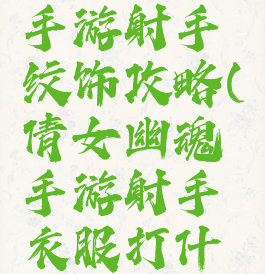 手游射手
纹饰攻略(
倩女幽魂
手游射手
衣服打什